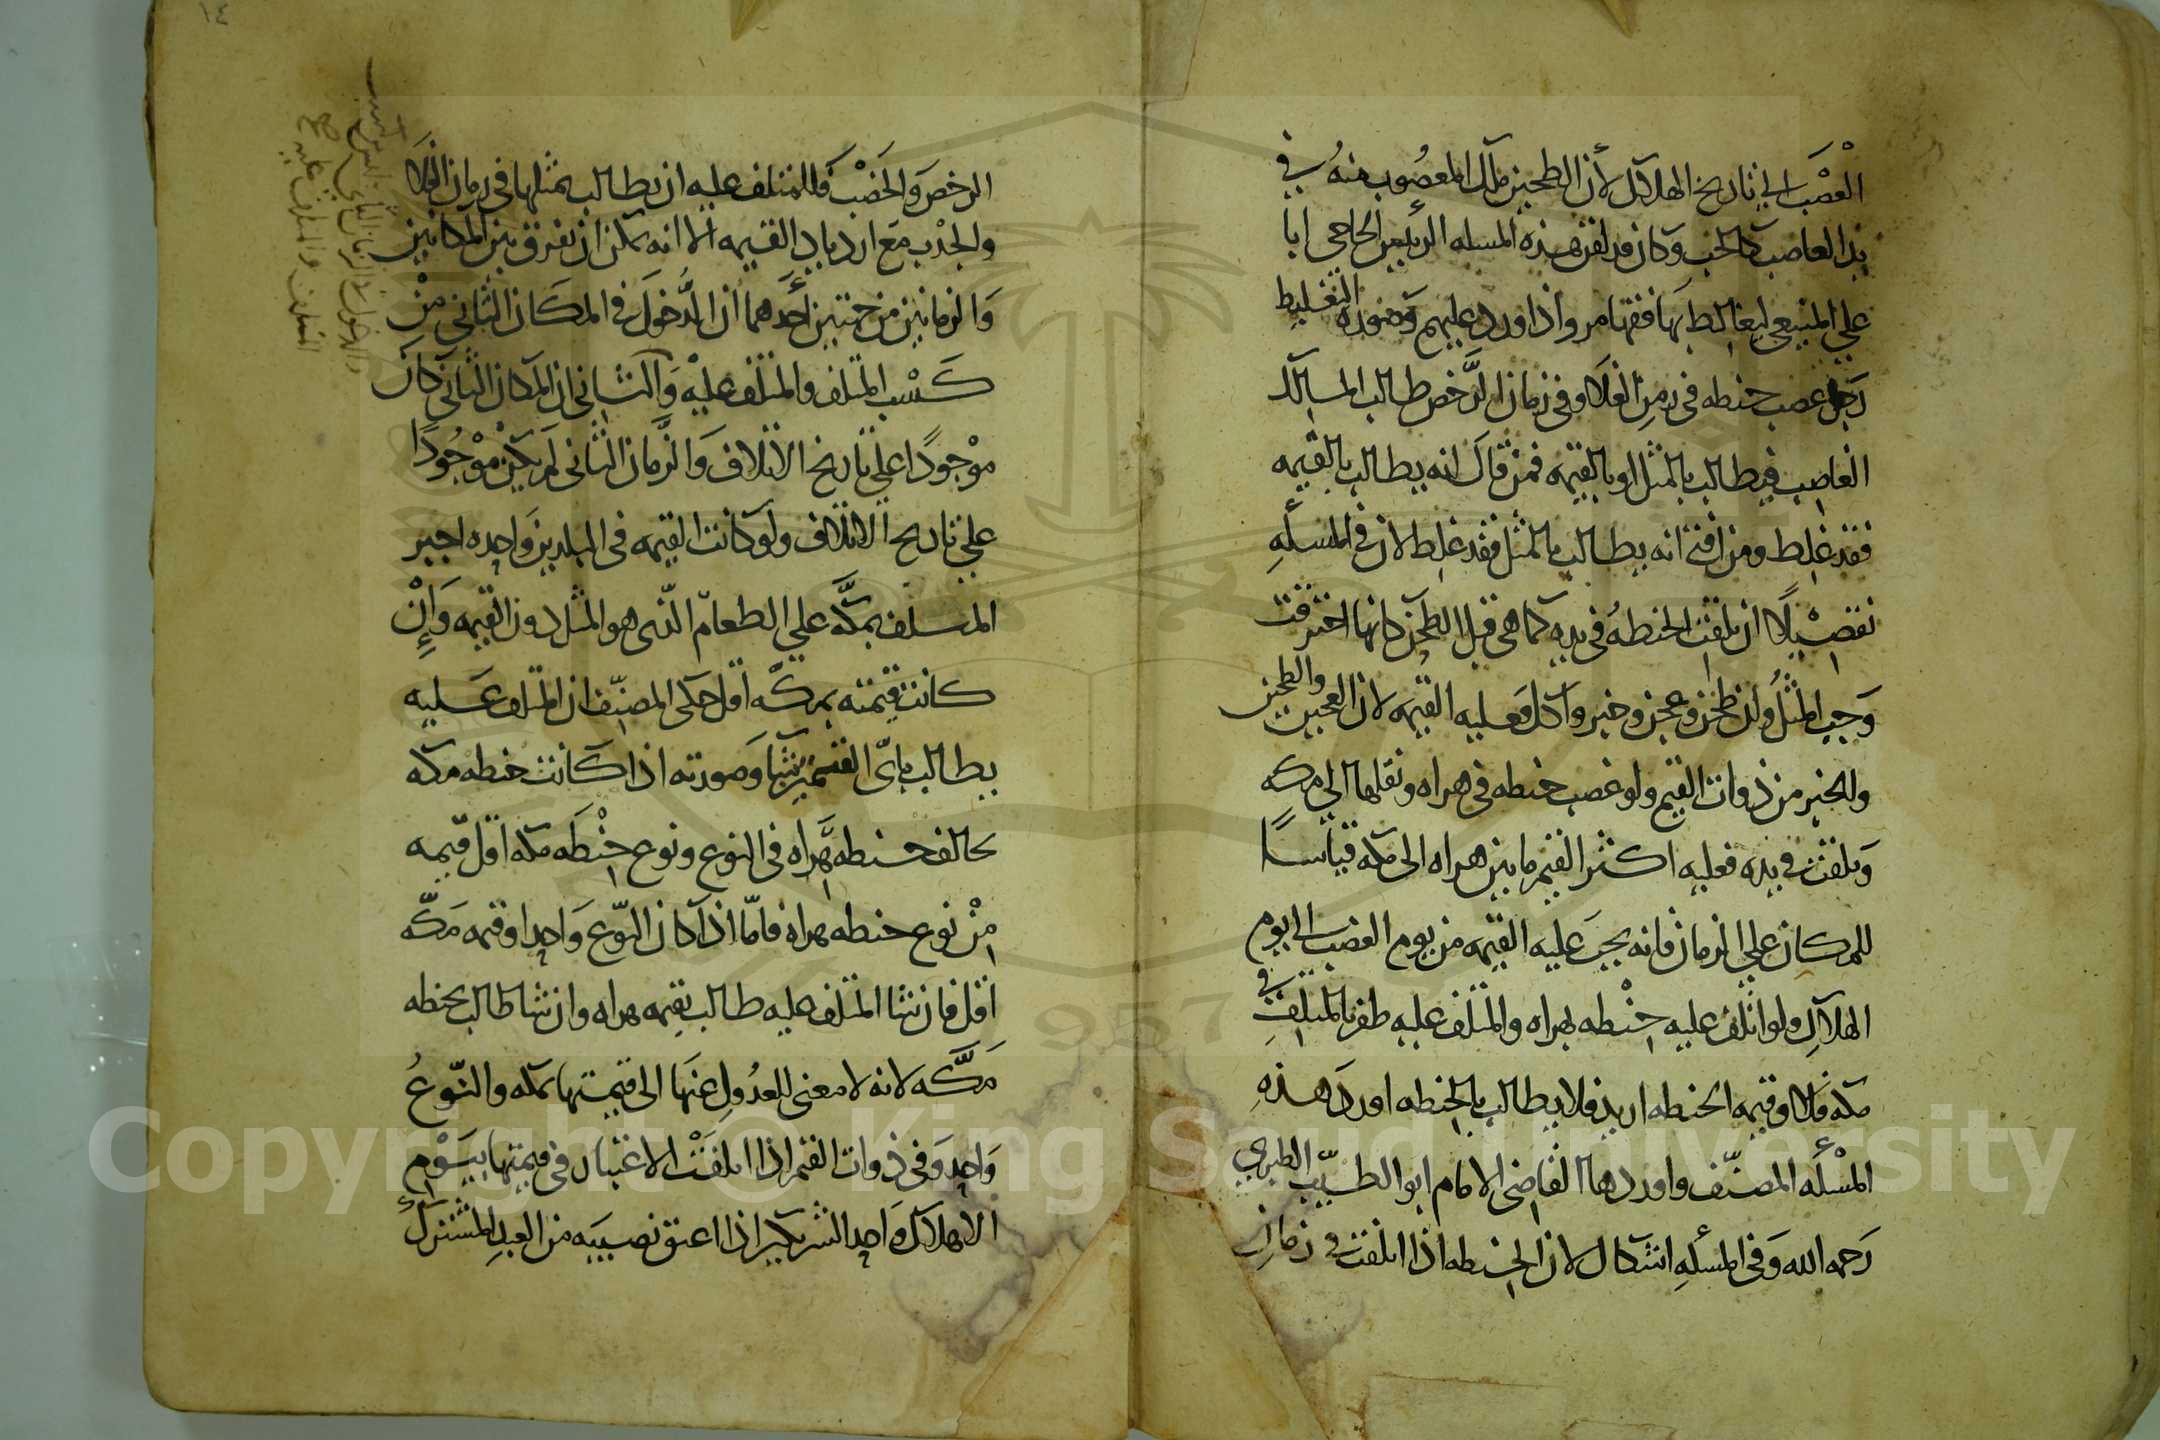 الغصَب الي تاريخ الهلاك لأن الطحين ملك المغصُوب منهُ في
يد الغاصب كالحب وكان قد لقن هذه المسله الرئيس الحاجي ابا
علي المنيعي ليغالط بها فقها مرو اذا اورد عليهم وصوره التغليط
رَجل غصب حنطه في زمن الغلا وفي زمان الرَّخص طالب المالك
الغاصب فيطالب بالمثل او بالقيمه فمن قال انه يطالب بالقيمه
فقد غلط ومن افتى انه يطالب بالمثل فقد غلط لان في المسئلهِ
تفصِيْلًا ان تلفت الحنطهُ في يدِه كما هي قبل الطحن كانها احترقت
وَجب المثلُ وان طحن وعجن وخبز واكل فعليه القيمه لان العجين والطحين
والخبز من ذوات القيم ولو غصب حنطه في هراه ونقلها الي مكه
وتلفت في يده فعليه اكثر القيم ما بين هراه الى مكه قياسًا
للمكان علي الزمان فانه يجب عليه القيمه من يوم الغصب الي يوم
الهلاكِ ولو اتلف عليه حِنْطه بهراه والمتلف عليه ظفر بالمتلِفِ في
مكه وقيمه الحنطه ازيد فلا يطالب بالحنطه اورد هذهِ
المسْئله المصنّف واوردها القاضي الامام ابو الطيّب الطبري
رَحمه الله وَفي المسئلهِ اشكال لان الحنطه اذا اتلفت في زمانِ
الرخصَ وَالخصْب فللمتلف عليه ان يطالب بمثلها في زمان الغلا
والجدْب مَع ازدياد القيمه الا انه يمكن ان يفرق بين المكانين
وَالزمانين من جهتين أحَدهما ان الدُّخولَ في المكان الثاني مِنْ
كسْب المتلف والمتلف عليْه وَالثاني ان المكان الثاني كانَ
موْجودًا علي تاريخ الاتلاف وَالزَّمان الثاني لم يكن موْجُودًا
علي تاريخ الاتلاف ولو كانت القيمه في البلدين وَاحِده اجبر
المتلف بمكَّه علي الطعام الّذي هو المثل دون القيمه وَإِنْ
كانت قيمته بمكّه اقل حكى المصنّف ان المتلف عَليه
يطالب باىّ القسمين شَا وَصورته اذا كانت حنطه مكه
تخالف حنطه هَراه في النوع ونوع حِنْطَه مكه اقل قيمه
مِنْ نوع حنطه هراه فامّا اذا كان النّوع وَاحِدا وقيمه مَكّه
اقل فان شا المتلف عليه طالب بقيمه هراه وان شا طالب بحنطه
مَكَّه لانه لا معنى للعدُولِ عنهَا الى قيمتها بمكه والنّوعُ
وَاحِد وَفي ذوات القيم اذا اتلفَتْ الاعتبار في قيمتها بيَوْمِ
الاهلاك وَاحد الشريكين اذا اعتق نصيبَه من العبدِ المشترك